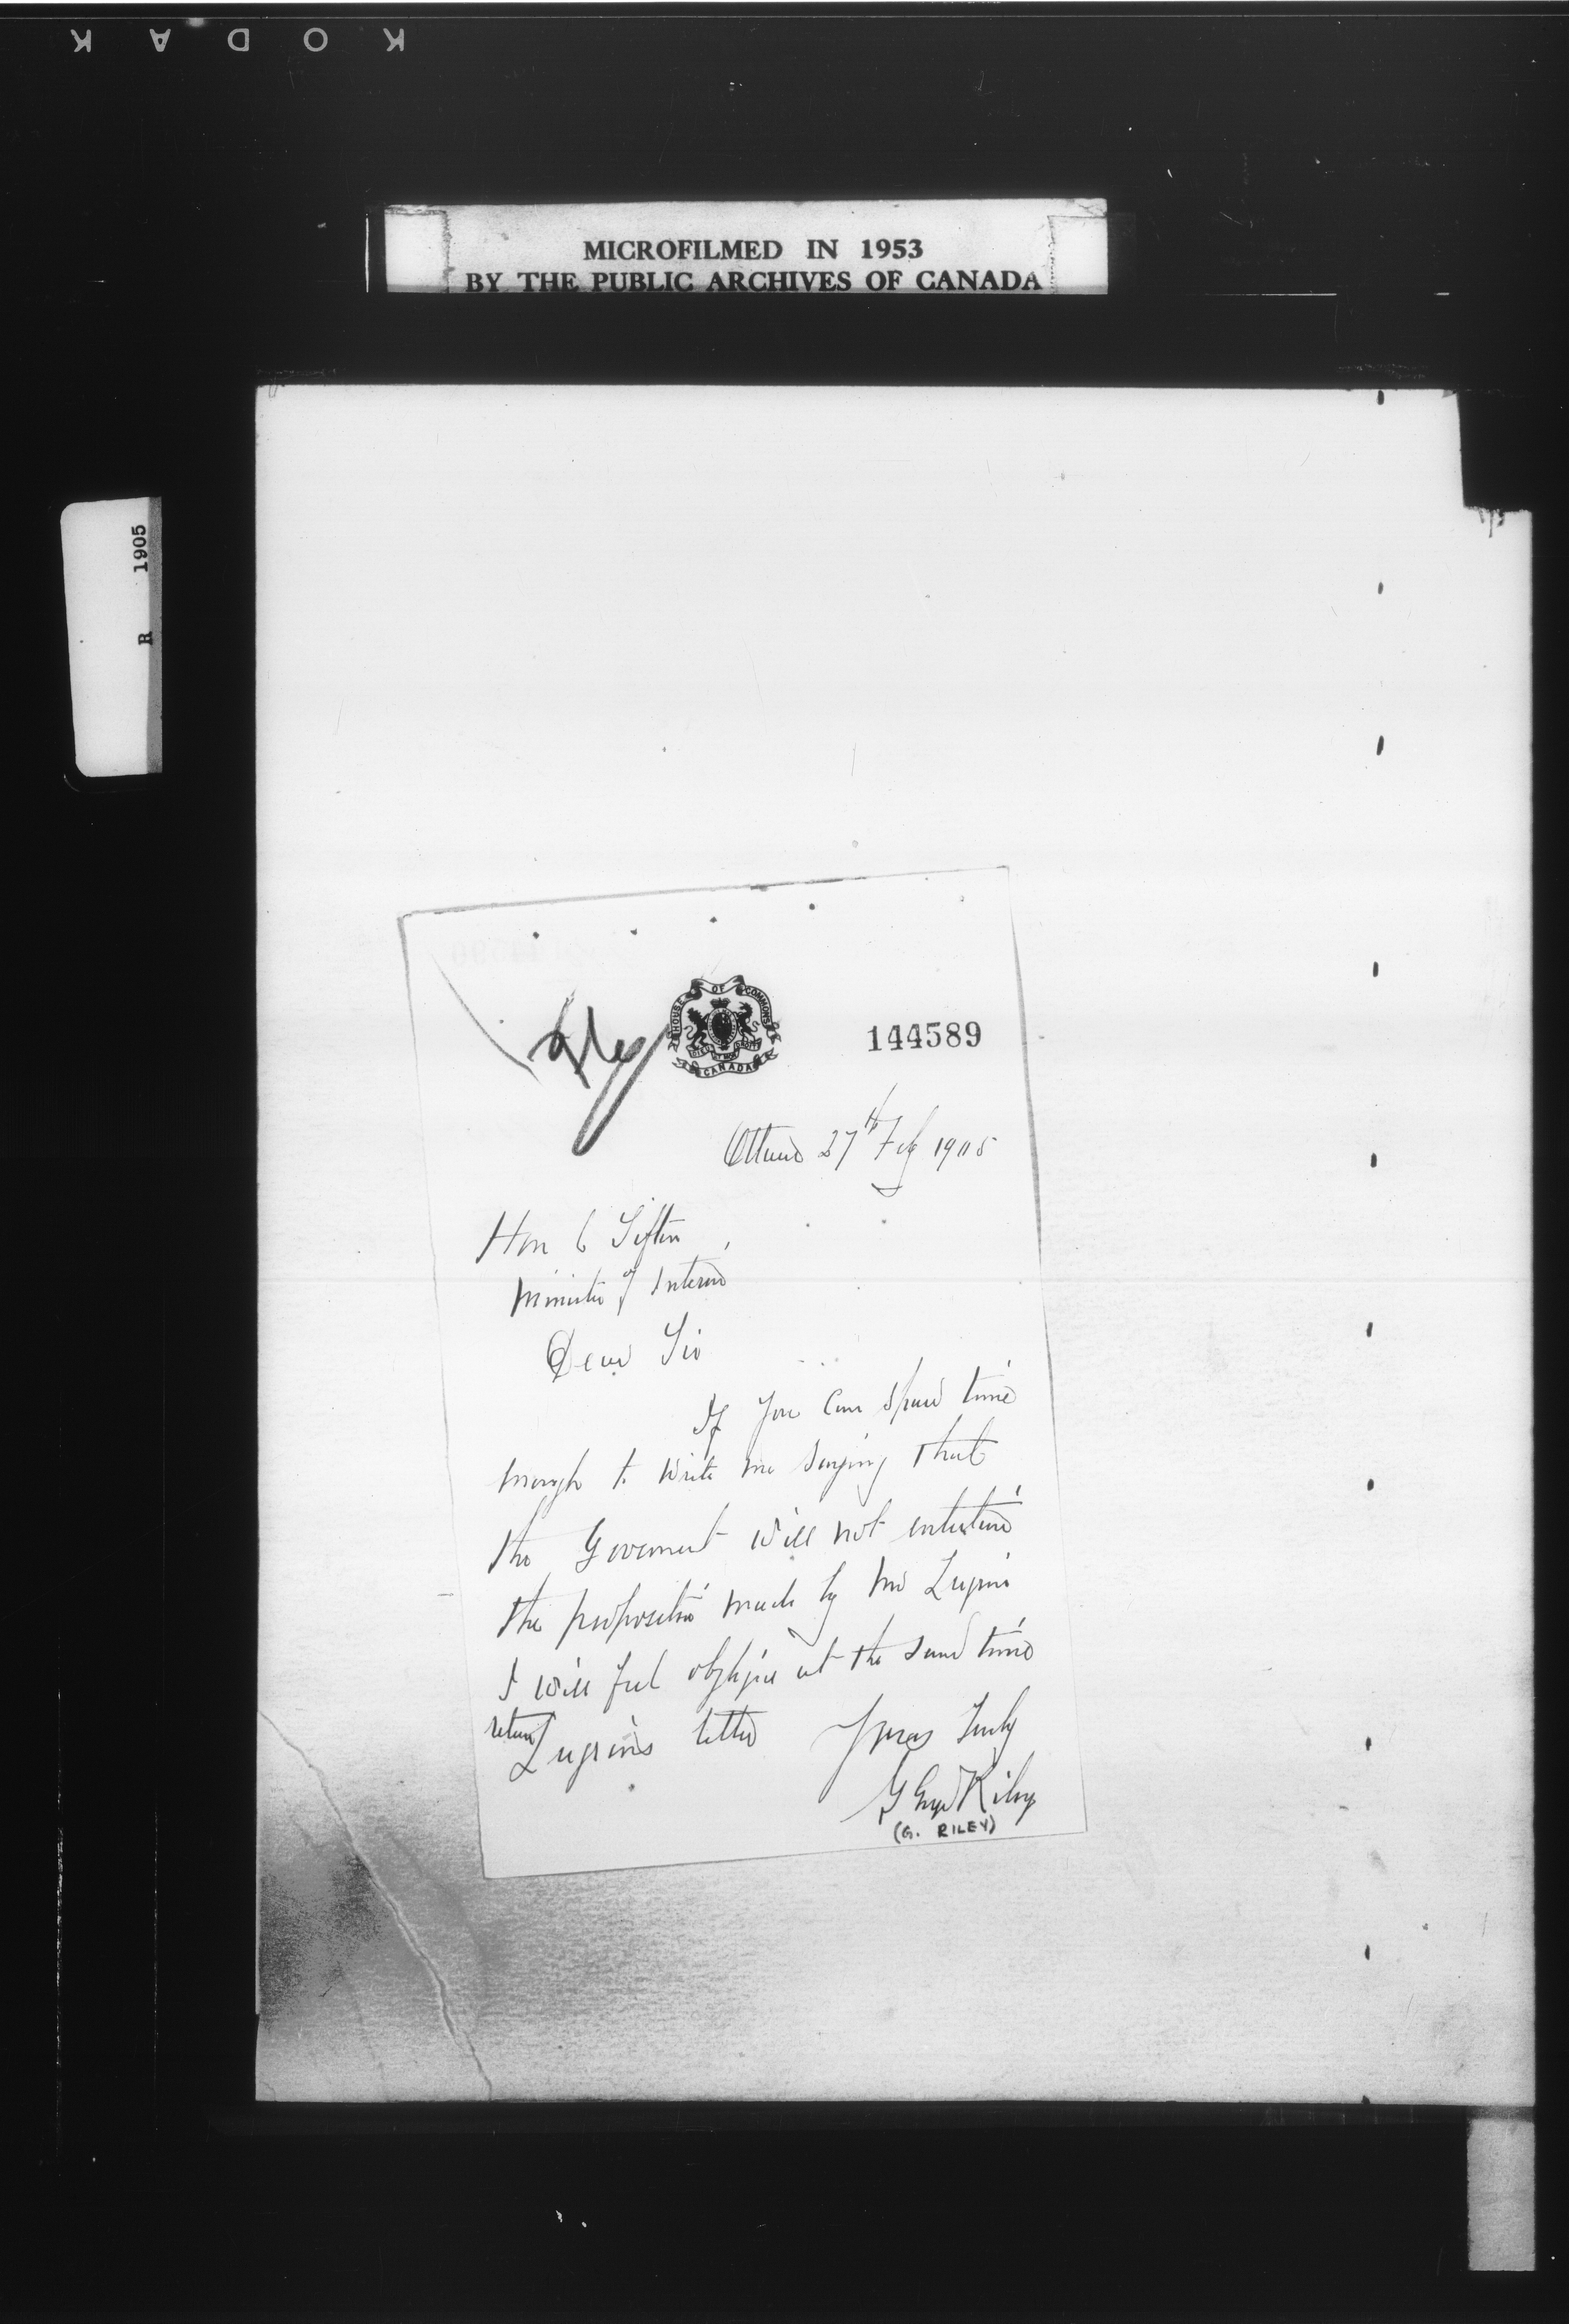 KODAK
MICROFILMED IN 1953
BY THE PUBLIC ARCHIVES OF CANADA
R 1905
HOUSE OF COMMONS
CANADA
144589
Ottawa 27th Feby 1905
Hon C Sifton
Minister of Interior
Dear Sir
If you can spare time
enough to write me saying that
the Goverment will not entertain
the proposition made by Mr Lugrin
I will feel obliged at the same time
return Lugrins letter Yours Truly
Riley
(G. RILEY)